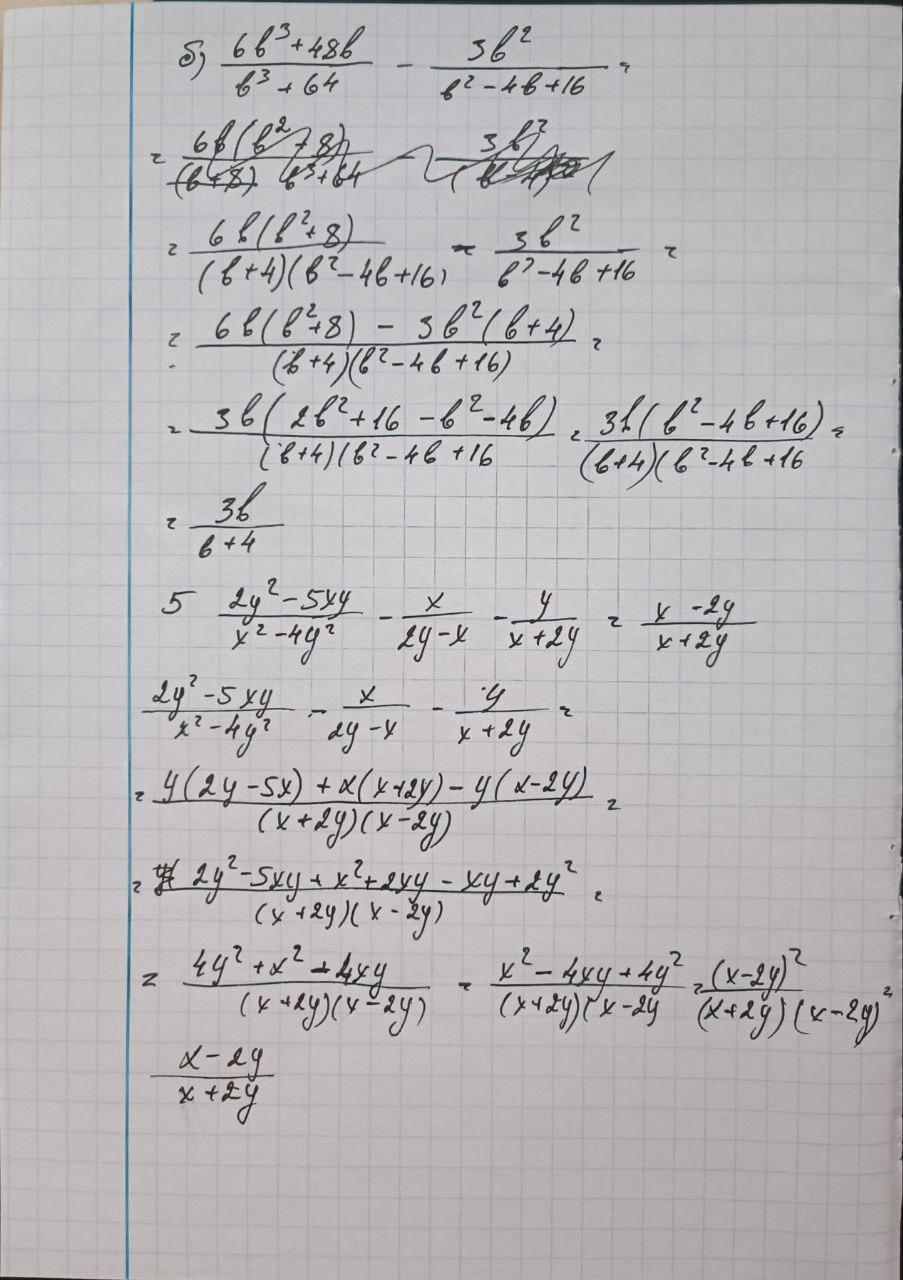 б) (6b³+48b)/(b³+64) - 3b²/(b²-4b+16) =
= 6b(b²+8)/((b+8) b³+64) - 3b²
= 6b(b²+8)/((b+4)(b²-4b+16)) - 3b²/(b²-4b+16) =
= (6b(b²+8) - 3b²(b+4))/((b+4)(b²-4b+16)) =
= 3b(2b²+16-b²-4b)/((b+4)(b²-4b+16 = 3b(b²-4b+16)/((b+4)(b²-4b+16 =
= 3b/(b+4)
5 (2y²-5xy)/(x²-4y²) - x/(2y-x) - y/(x+2y) = (x-2y)/(x+2y)
(2y²-5xy)/(x²-4y²) - x/(2y-x) - y/(x+2y) =
= (y(2y-5x)+x(x+2y)-y(x-2y))/((x+2y)(x-2y)) =
= (2y²-5xy+x²+2xy-xy+2y²)/((x+2y)(x-2y)) =
= (4y²+x²-4xy)/((x+2y)(x-2y)) = (x²-4xy+4y²)/((x+2y)(x-2y = (x-2y)²/((x+2y)(x-2y)) =
(x-2y)/(x+2y)